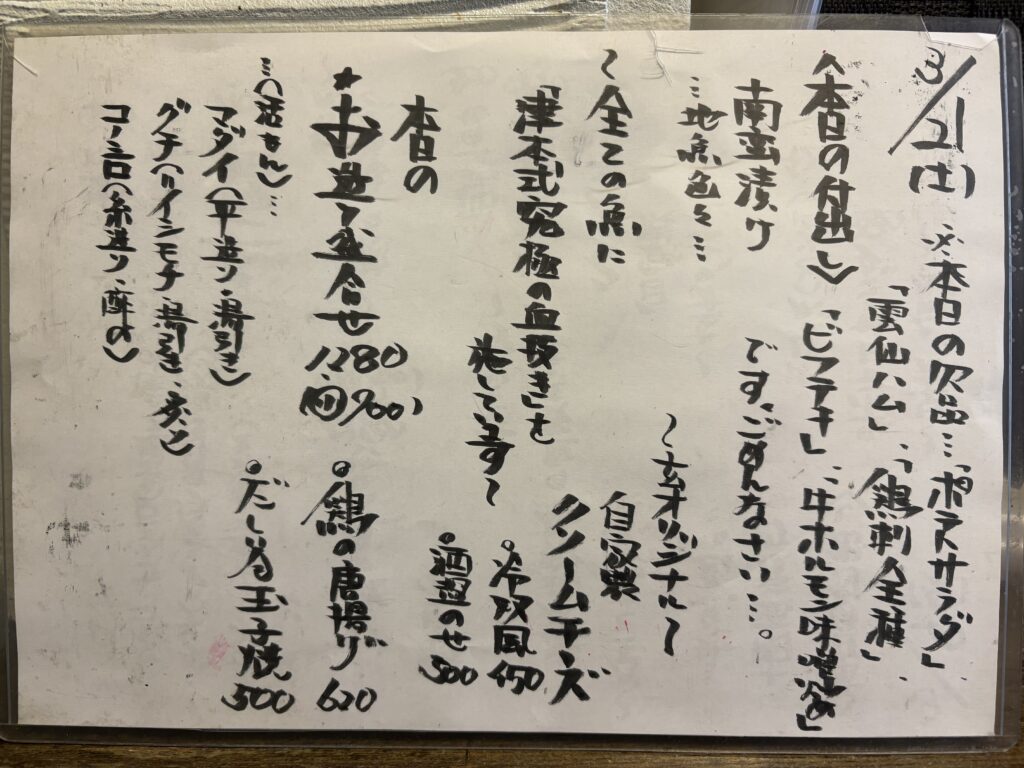 3/21(土)
※本日の欠品…「ポテトサラダ」
「雲仙ハム」、「鶏刺全種」、
「ビフテキ」、「牛ホルモン味噌炒め」
です、ごめんなさい…。
〈本日の付出し〉
南蛮漬け
…地魚色々…
〜全ての魚に
「津本式究極の血抜き」を
施しています〜
本日の
★お造り盛合せ 1,280
(小 900)
…(活もん)…
マダイ(平造り・湯引き)
グチ(イシモチ・湯引き・炙り)
コノシロ(糸造り・酢〆)
〜玄オリジナル〜
自家製
クリームチーズ
○冷奴風 450
○酒盗のせ 500
○鶏の唐揚げ 620
○だし巻玉子焼 500